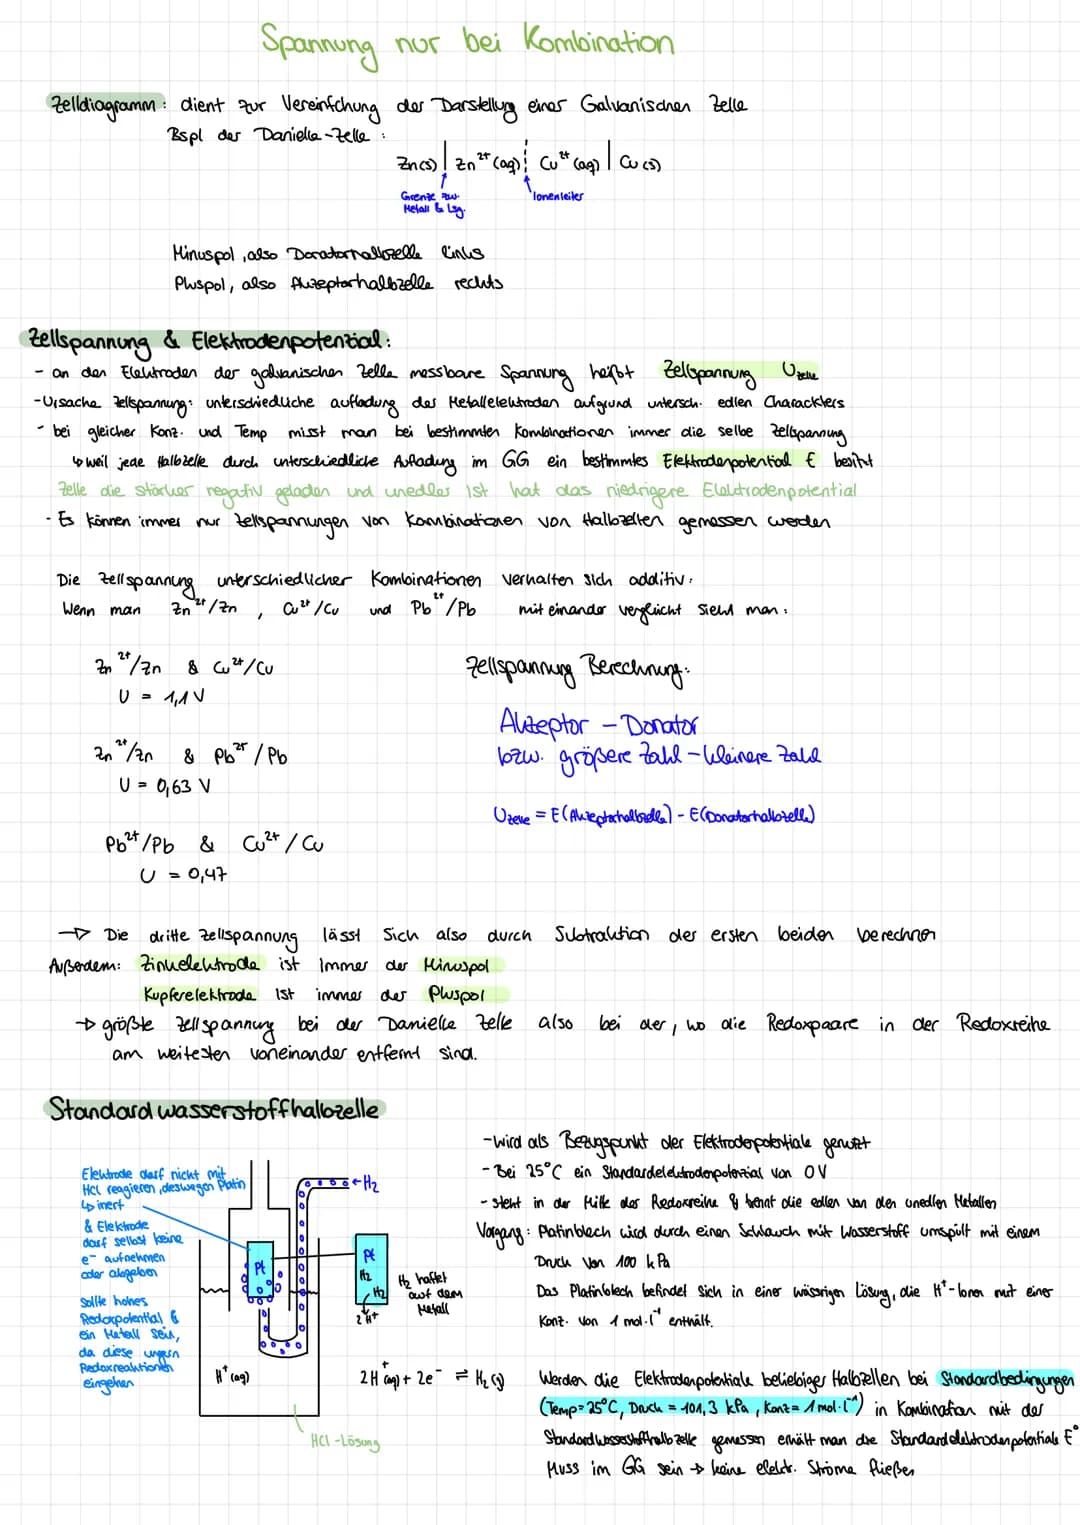 Spannung nur bei Kombination
Zelldiagramm: dient zur Vereinfchung der Darstellung einer Galvanischen Zelle
Bspl der Danielle-Zelle:
Zn(s) | Zn²⁺(aq) ¦ Cu²⁺(aq) | Cu(s)
Grenze zw. Metall & Lsg.
Ionenleiter
Minuspol, also Donatorhalbzelle links
Pluspol, also Akzeptorhalbzelle rechts
Zellspannung & Elektrodenpotenzial:
- an den Elektroden der galvanischen Zelle messbare Spannung heißt Zellspannung U Zelle
- Ursache Zellspannung: unterschiedliche aufladung der Metallelektroden aufgrund untersch. edlen Charackters
- bei gleicher Konz. und Temp misst man bei bestimmten Kombinationen immer die selbe Zellspannung
↳ weil jede Halbzelle durch unterschiedliche Aufladung im GG ein bestimmtes Elektrodenpotential E besitzt
Zelle die stärker negativ geladen und unedler ist hat das niedrigere Elektrodenpotential
- Es können immer nur Zellspannungen von Kombinationen von Halbzellen gemessen werden
Die Zellspannung unterschiedlicher Kombinationen verhalten sich additiv:
Wenn man Zn²⁺/Zn, Cu²⁺/Cu und Pb²⁺/Pb miteinander vergleicht sieht man:
Zn²⁺/Zn & Cu²⁺/Cu
U = 1,1 V
Zn²⁺/Zn & Pb²⁺/Pb
U = 0,63 V
Pb²⁺/Pb & Cu²⁺/Cu
U = 0,47
Zellspannung Berechnung:
Akzeptor – Donator
bzw. größere Zahl – kleinere Zahl
U Zelle = E(Akzeptorhalbzelle) - E(Donatorhalbzelle)
→ Die dritte Zellspannung lässt sich also durch Subtraktion der ersten beiden berechnen
Außerdem: Zinkelektrode ist immer der Minuspol
Kupferelektrode ist immer der Pluspol
→ größte Zellspannung bei der Danielle Zelle also bei der, wo die Redoxpaare in der Redoxreihe
am weitesten voneinander entfernt sind.
Standardwasserstoffhalbzelle
Elektrode darf nicht mit
HCl reagieren, deswegen Platin
↳ inert
& Elektrode
darf selbst keine
e⁻ aufnehmen
oder abgeben
Sollte hohes
Redoxpotential &
ein Metall sein,
da diese ungern
Redoxreaktionen
eingehen
←H₂
Pt
Pt
H₂
H₂
2 H⁺
H₂ haftet
auf dem
Metall
H⁺(aq)
2H⁺(aq) + 2e⁻ ⇌ H₂(g)
HCl-Lösung
- Wird als Bezugspunkt der Elektrodenpotentiale genutzt
- Bei 25°C ein Standardelektrodenpotenzial von 0V
- steht in der Mitte der Redoxreihe & trennt die edlen von den unedlen Metallen
Vorgang: Platinblech wird durch einen Schlauch mit Wasserstoff umspült mit einem
Druck von 100 kPa
Das Platinblech befindet sich in einer wässrigen Lösung, die H⁺-Ionen mit einer
Konz. von 1 mol·l⁻¹ enthält.
Werden die Elektrodenpotentiale beliebiger Halbzellen bei Standardbedingungen
(Temp=25°C, Druck = 101,3 kPa, Konz = 1 mol·l⁻¹) in Kombination mit der
Standardwasserstoffhalbzelle gemessen erhält man die Standardelektrodenpotentiale E°
Muss im GG sein → keine elektr. Ströme fließen